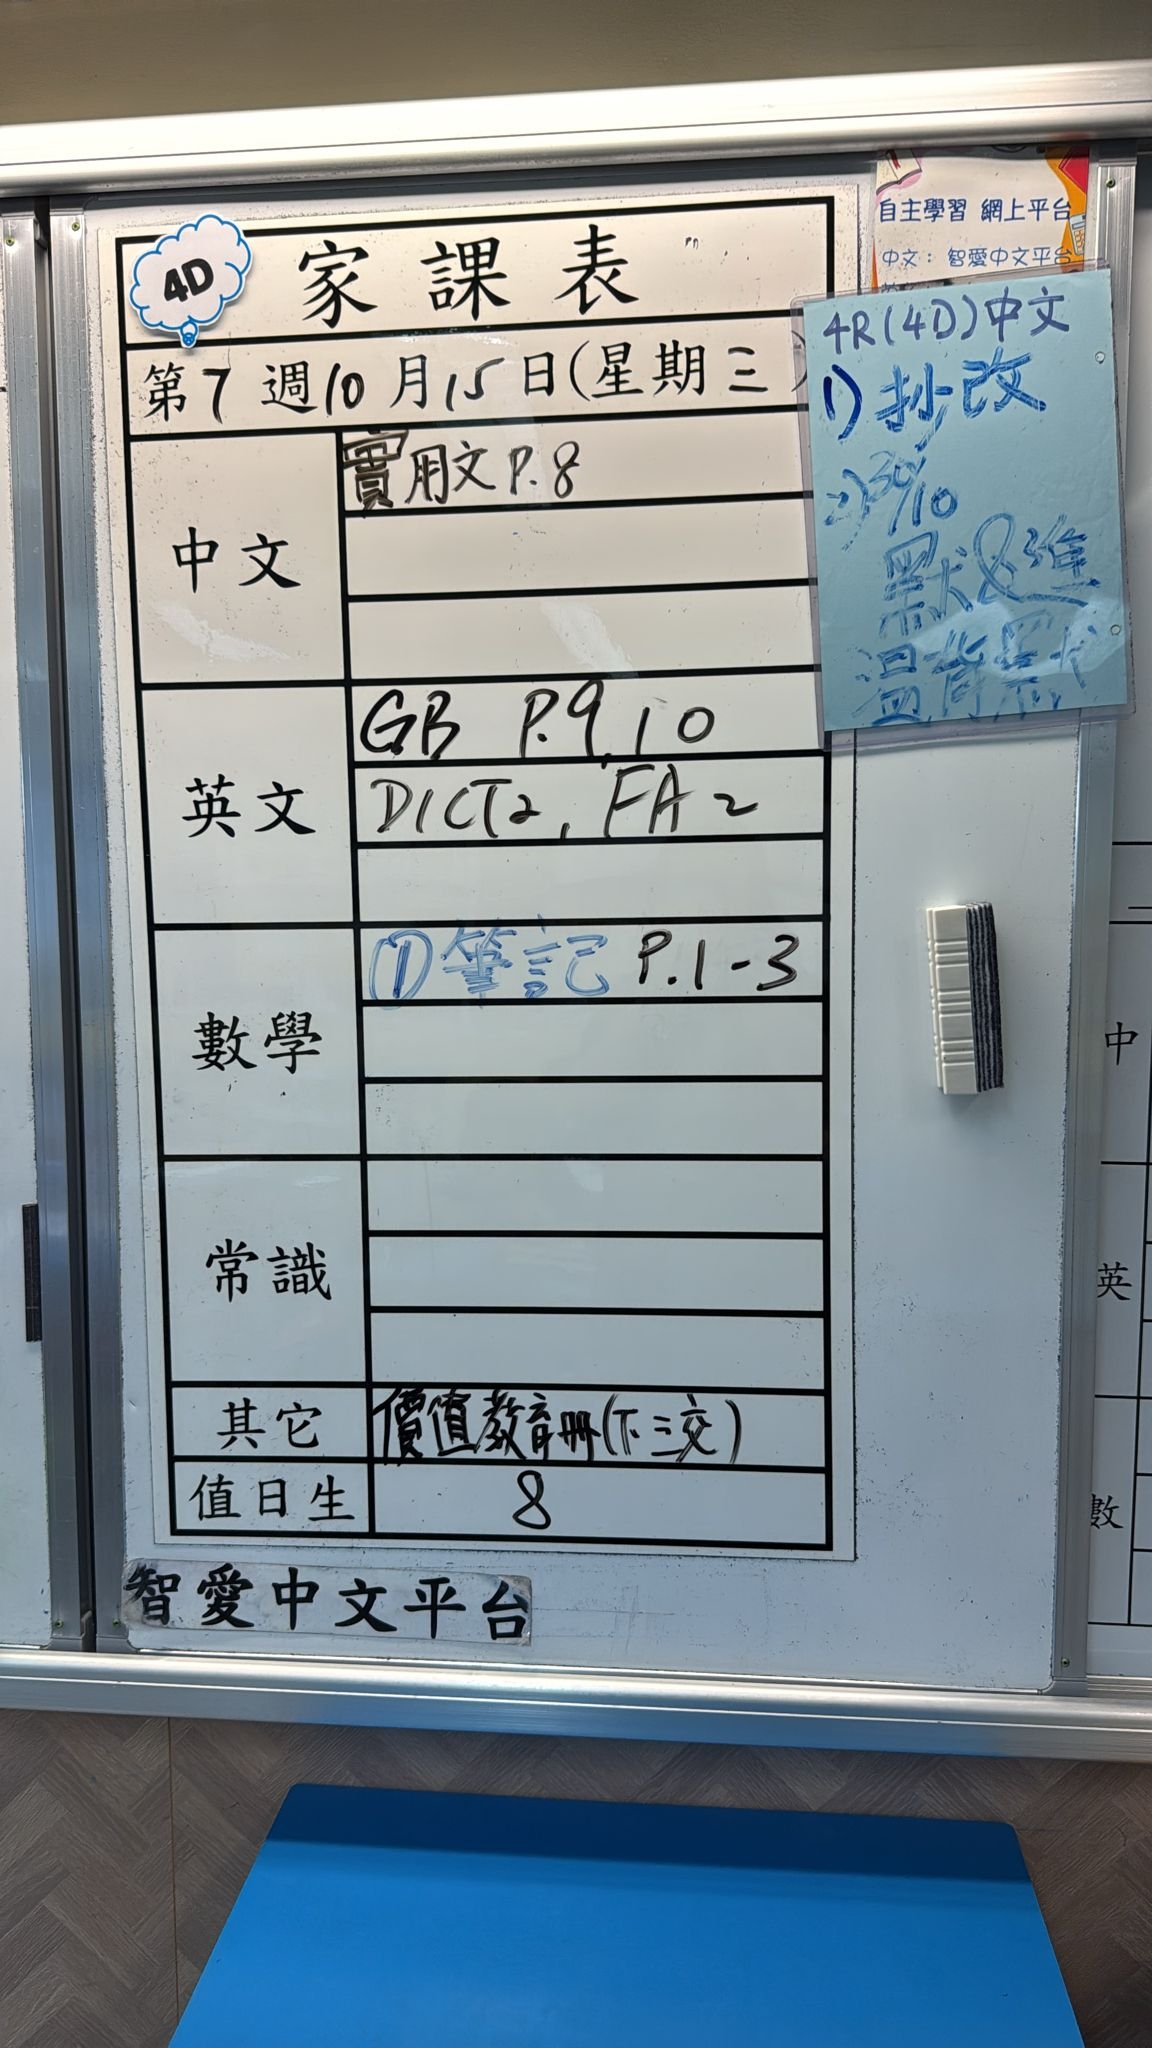 4D
家課表
第7週10月15日(星期三)
中文
實用文 P.8
英文
GB P.9,10
DICT2, FA2
數學
① 筆記 P.1-3
常識
其它
價值教育冊(下三交)
值日生
8
智愛中文平台
自主學習 網上平台
中文：智愛中文平台
4R(4D)中文
1) 抄改
2) 30/10
默&進
溫背默
中
英
數